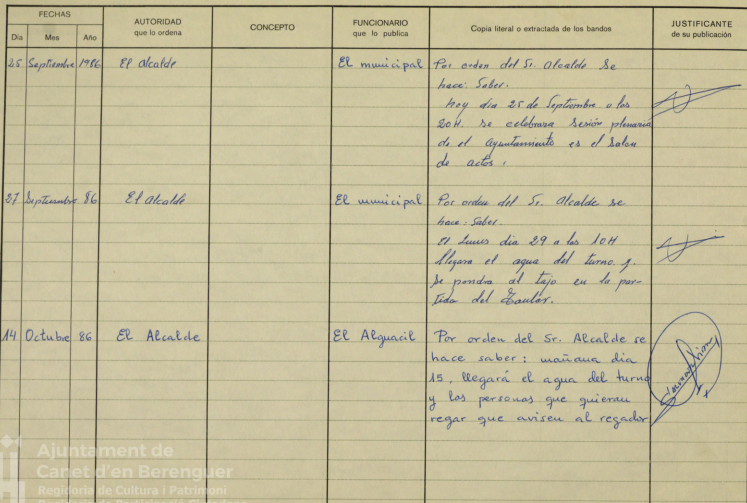 FECHAS
Día Mes Año
AUTORIDAD
que lo ordena
CONCEPTO
FUNCIONARIO
que lo publica
Copia literal o extractada de los bandos
JUSTIFICANTE
de su publicación
25 Septiembre 1986 El Alcalde El municipal Por orden del Sr. Alcalde Se
hace: Saber.
hoy dia 25 de Septiembre a las
20H. se celebrara Sesión plenaria
de el ayuntamiento es el Salon
de actos.
27 Septiembre 86 El Alcalde El municipal Por orden del Sr. Alcalde se
hace: Saber.
el Lunes dia 29 a las 10H
llegara el agua del turno y
se pondra al tajo en la par-
tida del
14 Octubre 86 El Alcalde El Alguacil Por orden del Sr. Alcalde se
hace saber: mañana dia
15, llegará el agua del turno
y las personas que quieran
regar que avisen al regador
Ajuntament de
Canet d'en Berenguer
Regidoria de Cultura i Patrimoni